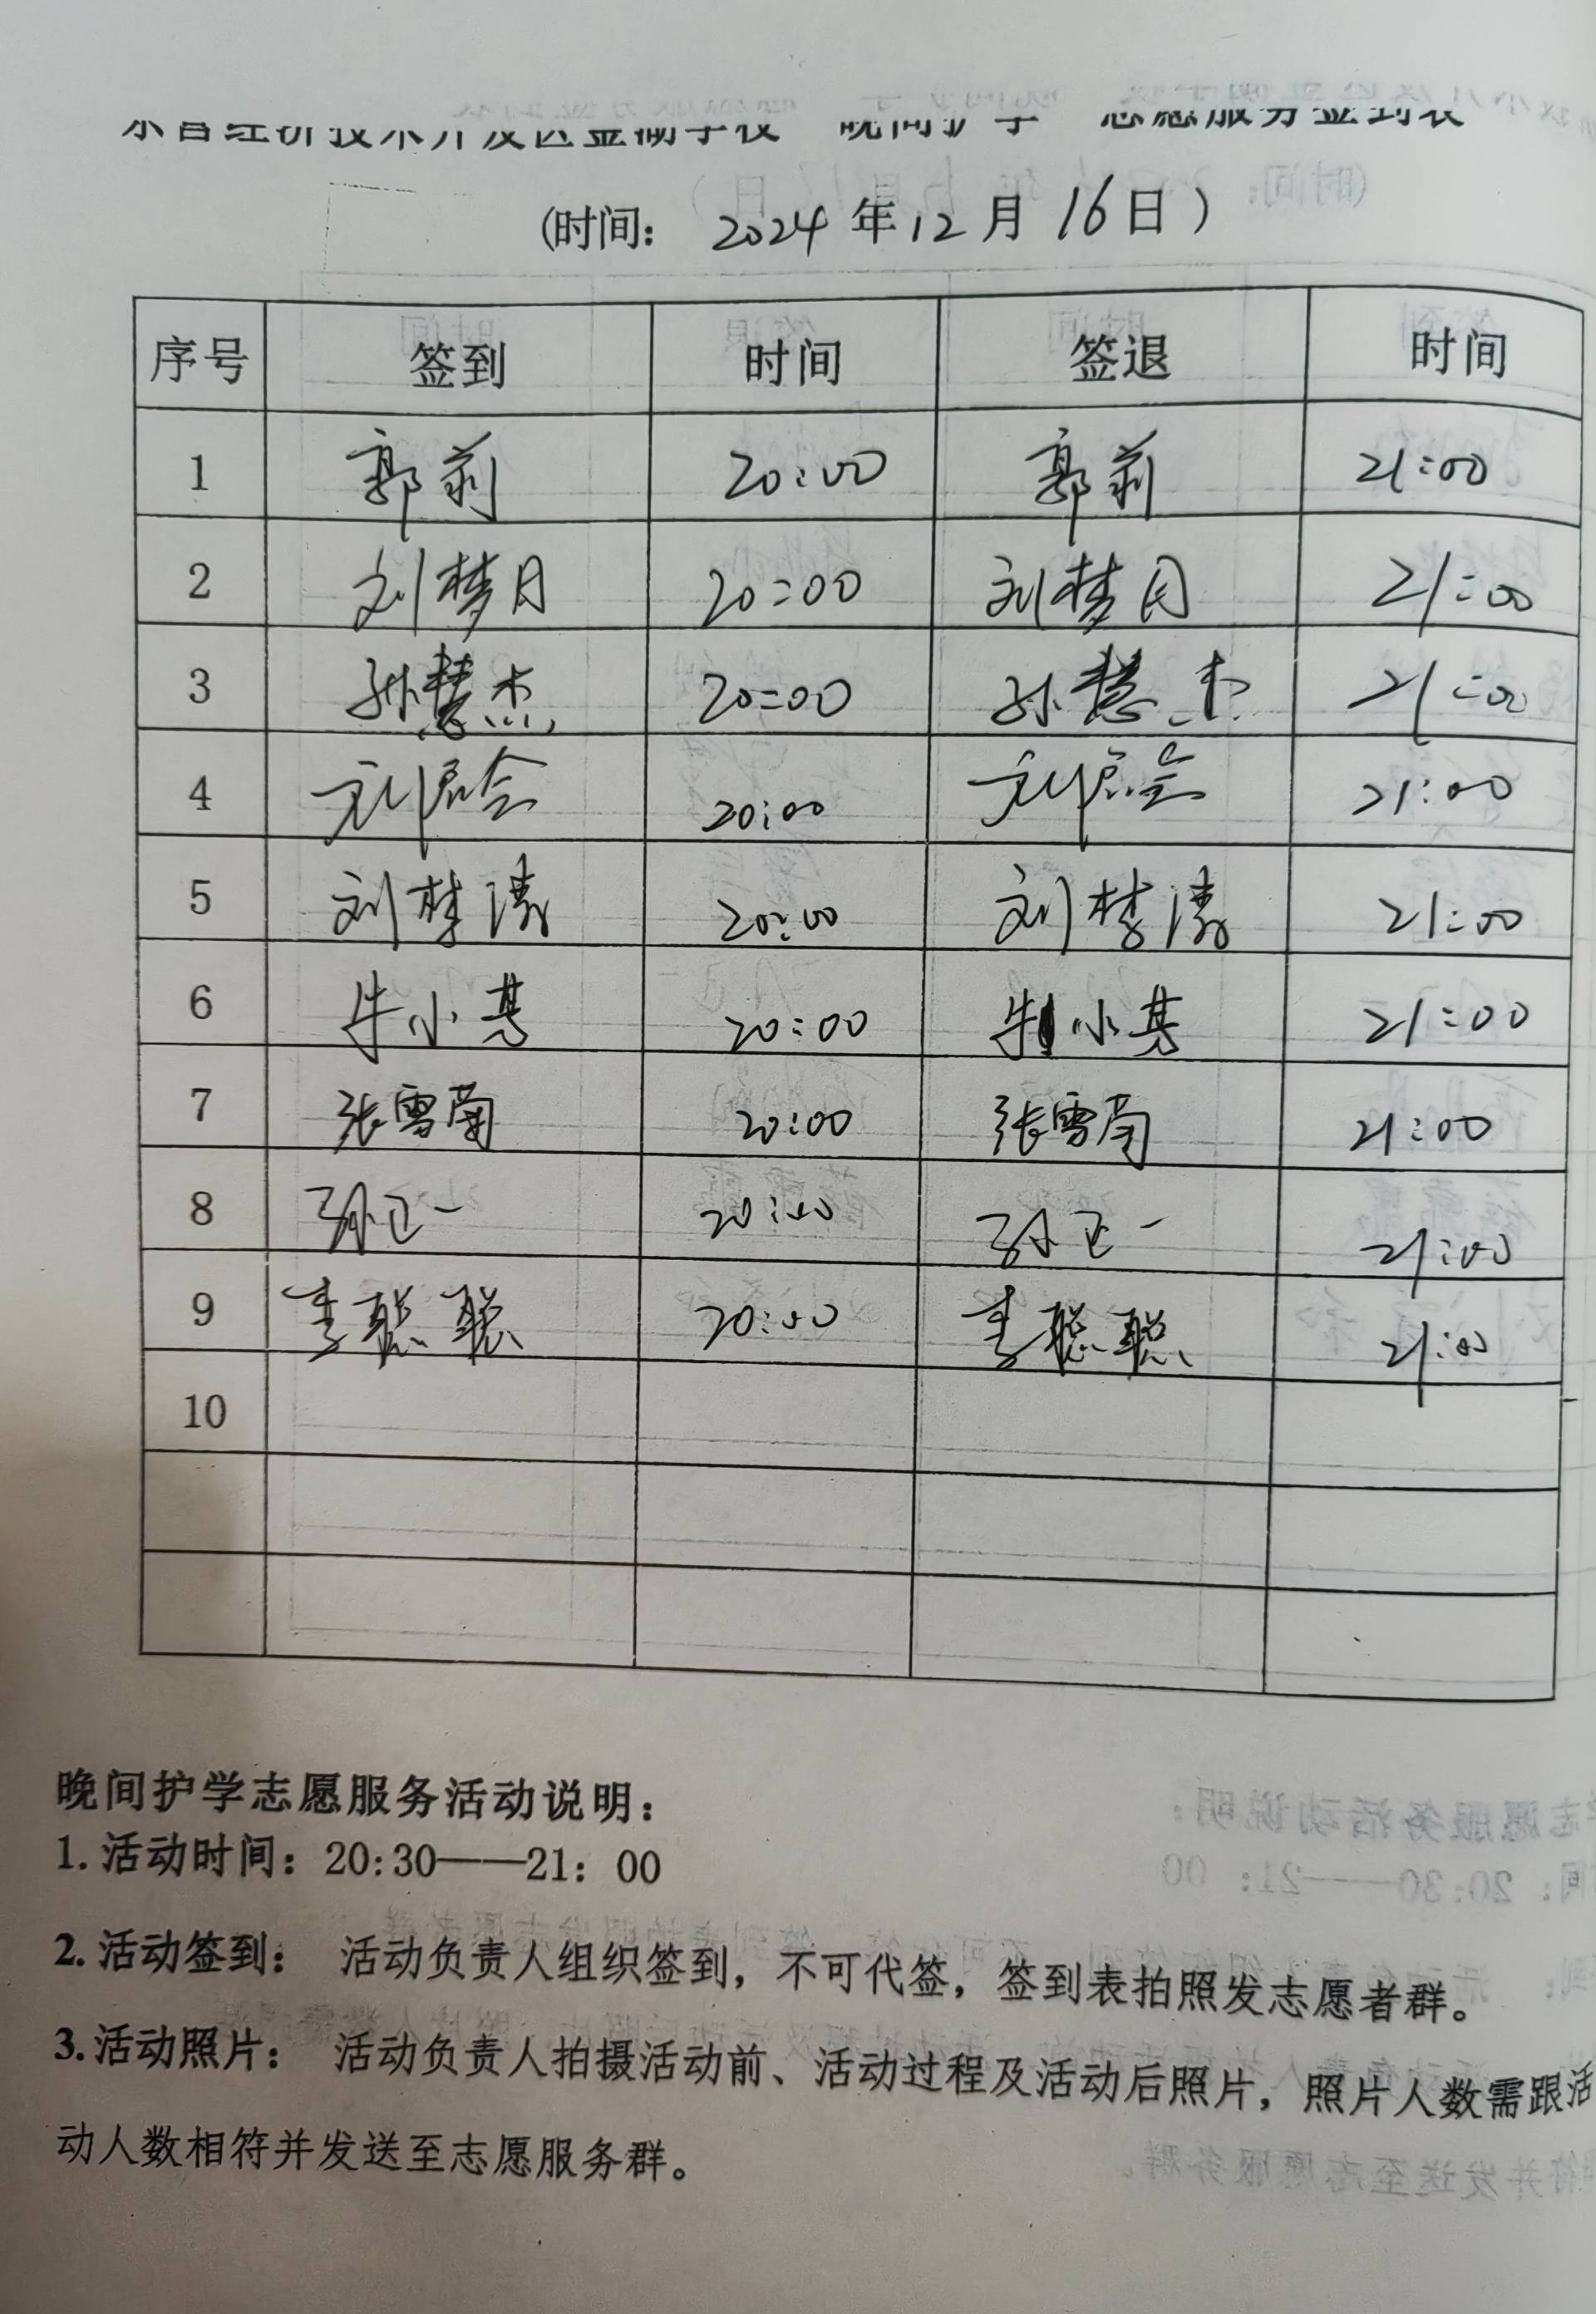 东营经济技术开发区金湖学校 晚间护学 志愿服务签到表
(时间： 2024 年 12 月 16 日)
序号 签到 时间 签退 时间
1 郭莉 20:00 郭莉 21:00
2 刘梦月 20:00 刘梦月 21:00
3 孙慧杰 20:00 孙慧杰 21:00
4 20:00 21:00
5 刘梦涛 20:00 刘梦涛 21:00
6 牛小其 20:00 牛小其 21:00
7 张雪菊 20:00 张雪菊 21:00
8 孙正一 20:00 孙正一 21:00
9 李聪聪 20:00 李聪聪 21:00
10
晚间护学志愿服务活动说明：
1. 活动时间：20:30——21：00
2. 活动签到： 活动负责人组织签到，不可代签，签到表拍照发志愿者群。
3. 活动照片： 活动负责人拍摄活动前、活动过程及活动后照片，照片人数需跟活
动人数相符并发送至志愿服务群。